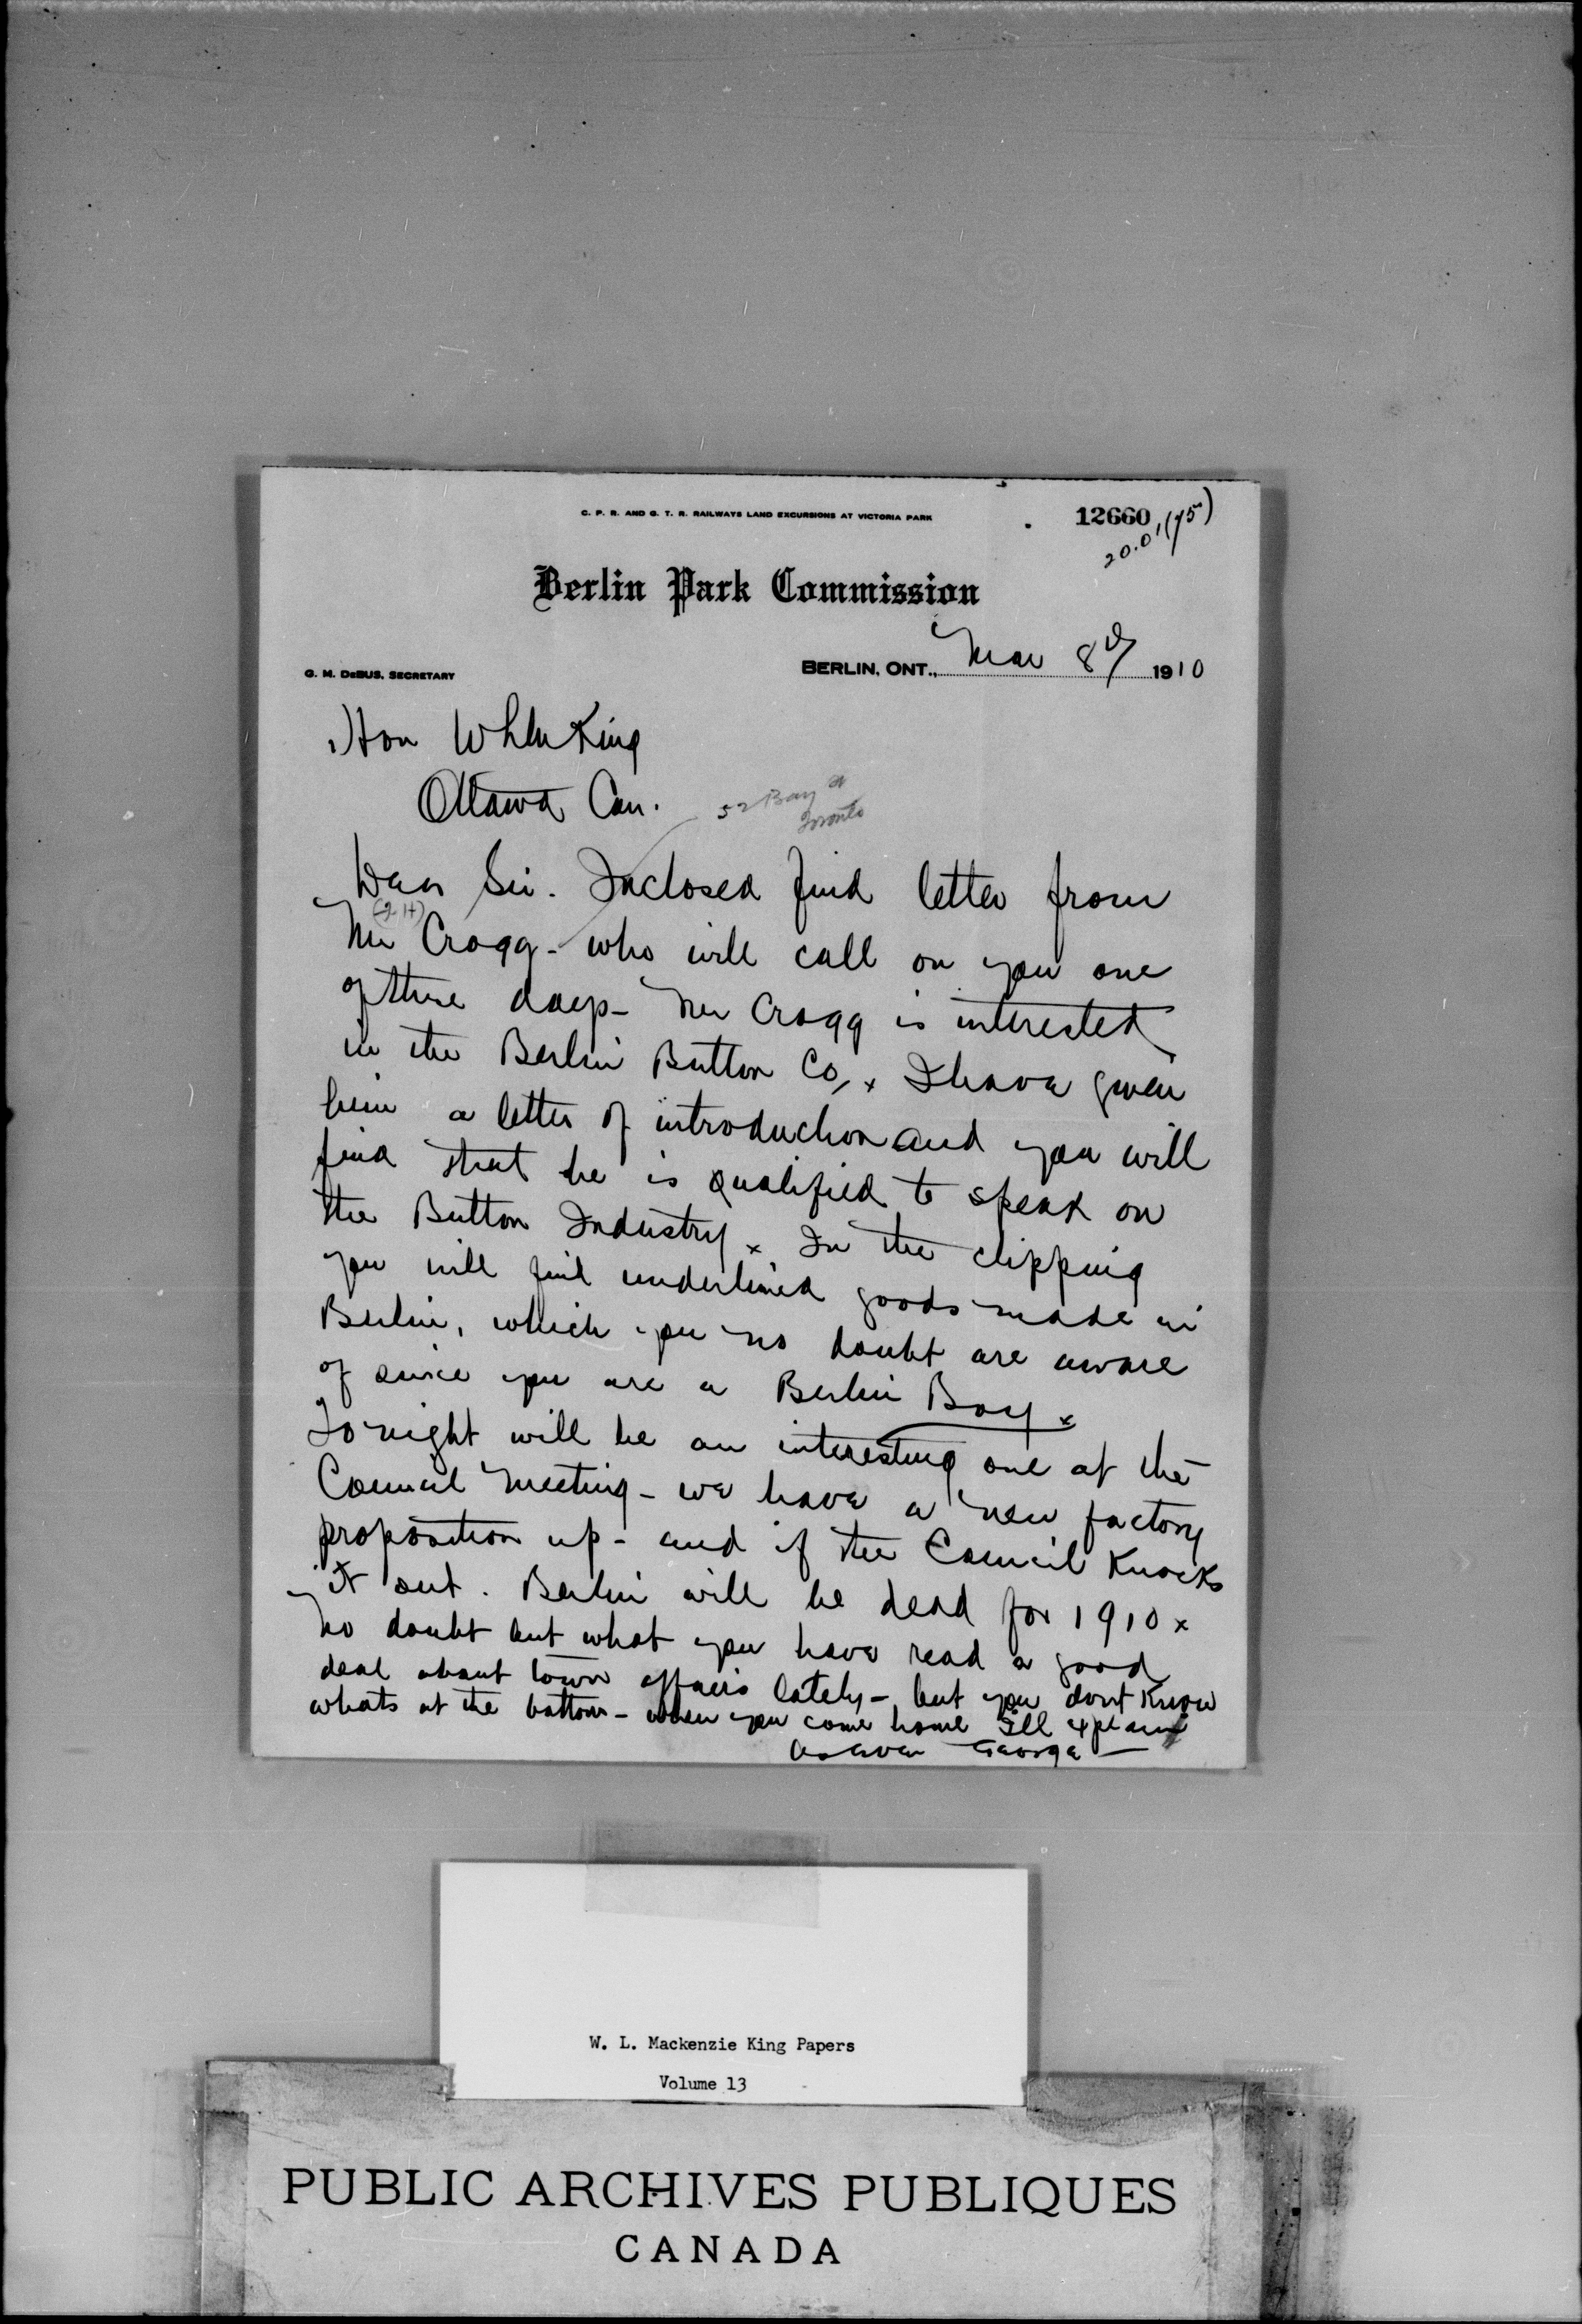 C. P. R. AND G. T. R. RAILWAYS LAND EXCURSIONS AT VICTORIA PARK
12660
20.0'(75)
Berlin Park Commission
G. M. DeBUS, SECRETARY
BERLIN, ONT., Mar 8th 1910
Hon WLM King
Ottawa Can.
52 Bay St
Toronto
Dear Sir. Inclosed find letter from
Mr Cragg - who will call on you one
of these days - Mr Cragg is interested
in the Berlin Button Co, x I have given
him a letter of introduction and you will
find that he is qualified to speak on
the Button Industry x In the clipping
you will find underlined goods made in
Berlin, which you no doubt are aware
of since you are a Berlin Boy x
To night will be an interesting one at the
Council meeting - we have a new factory
proposition up - and if the Council Knocks
it out. Berlin will be dead for 1910 x
no doubt but what you have read a good
deal about town affairs lately - but you dont Know
whats at the bottom - when you come home Ill explain
as ever George
W. L. Mackenzie King Papers
Volume 13
PUBLIC ARCHIVES PUBLIQUES
CANADA